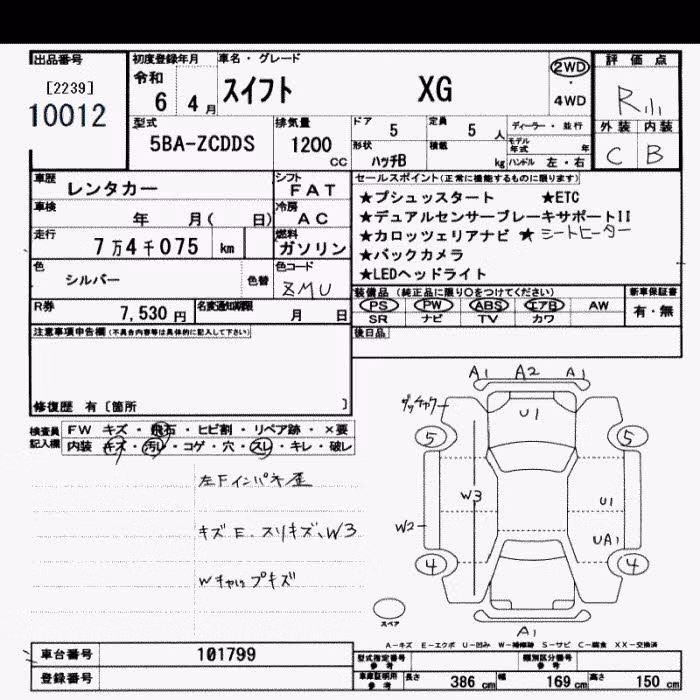 出品番号 初度登録年月 車名・グレード 2WD 評価点
[2239] 令和 スイフト XG ・
10012 6 4月 4WD R
型式 排気量 ドア 5 定員 5人 ディーラー・並行 外装 内装
5BA-ZCDDS 1200cc 形状 ハッチB 積載 kg モデル年式 年 ハンドル 左・右 C B
車歴 レンタカー シフト FAT セールスポイント(正常に機能するものに限ります)
車検 年 月( 日) 冷房 AC ★プシュッスタート ★ETC
★デュアルセンサーブレーキサポートII
走行 7万4千075 km 燃料 ガソリン ★カロッツェリアナビ ★シートヒーター
★バックカメラ
色 シルバー 色替 色コード ZMU ★LEDヘッドライト
装備品(純正品に限り○をつけてください) 新車保証書
R券 7,530円 名変通知期限 月 日 PS PW ABS エアB AW 有・無
SR ナビ TV カワ
注意事項申告欄(不具合内容等は具体的に記入して下さい) 後日品
修復歴 有[箇所 ]
検査員記入欄 FW キズ・飛石・ヒビ割・リペア跡・×要
内装 キズ・汚レ・コゲ・穴・スレ・キレ・破レ
左Fインパネ歪
キズE、スリキズ、W3
Wチャリップキズ
A1 A2 A1
ダッチャク U1
5 5
W3 U1
W2 UA1
4 4
スペア
A1
A-キズ E-エクボ U-凹み W-補修跡 S-サビ C-腐食 XX-交換済
車台番号 101799 型式指定番号 参考 類別区分番号 参考
登録番号 車庫証明用 参考 長さ 386cm 幅 169cm 高さ 150cm